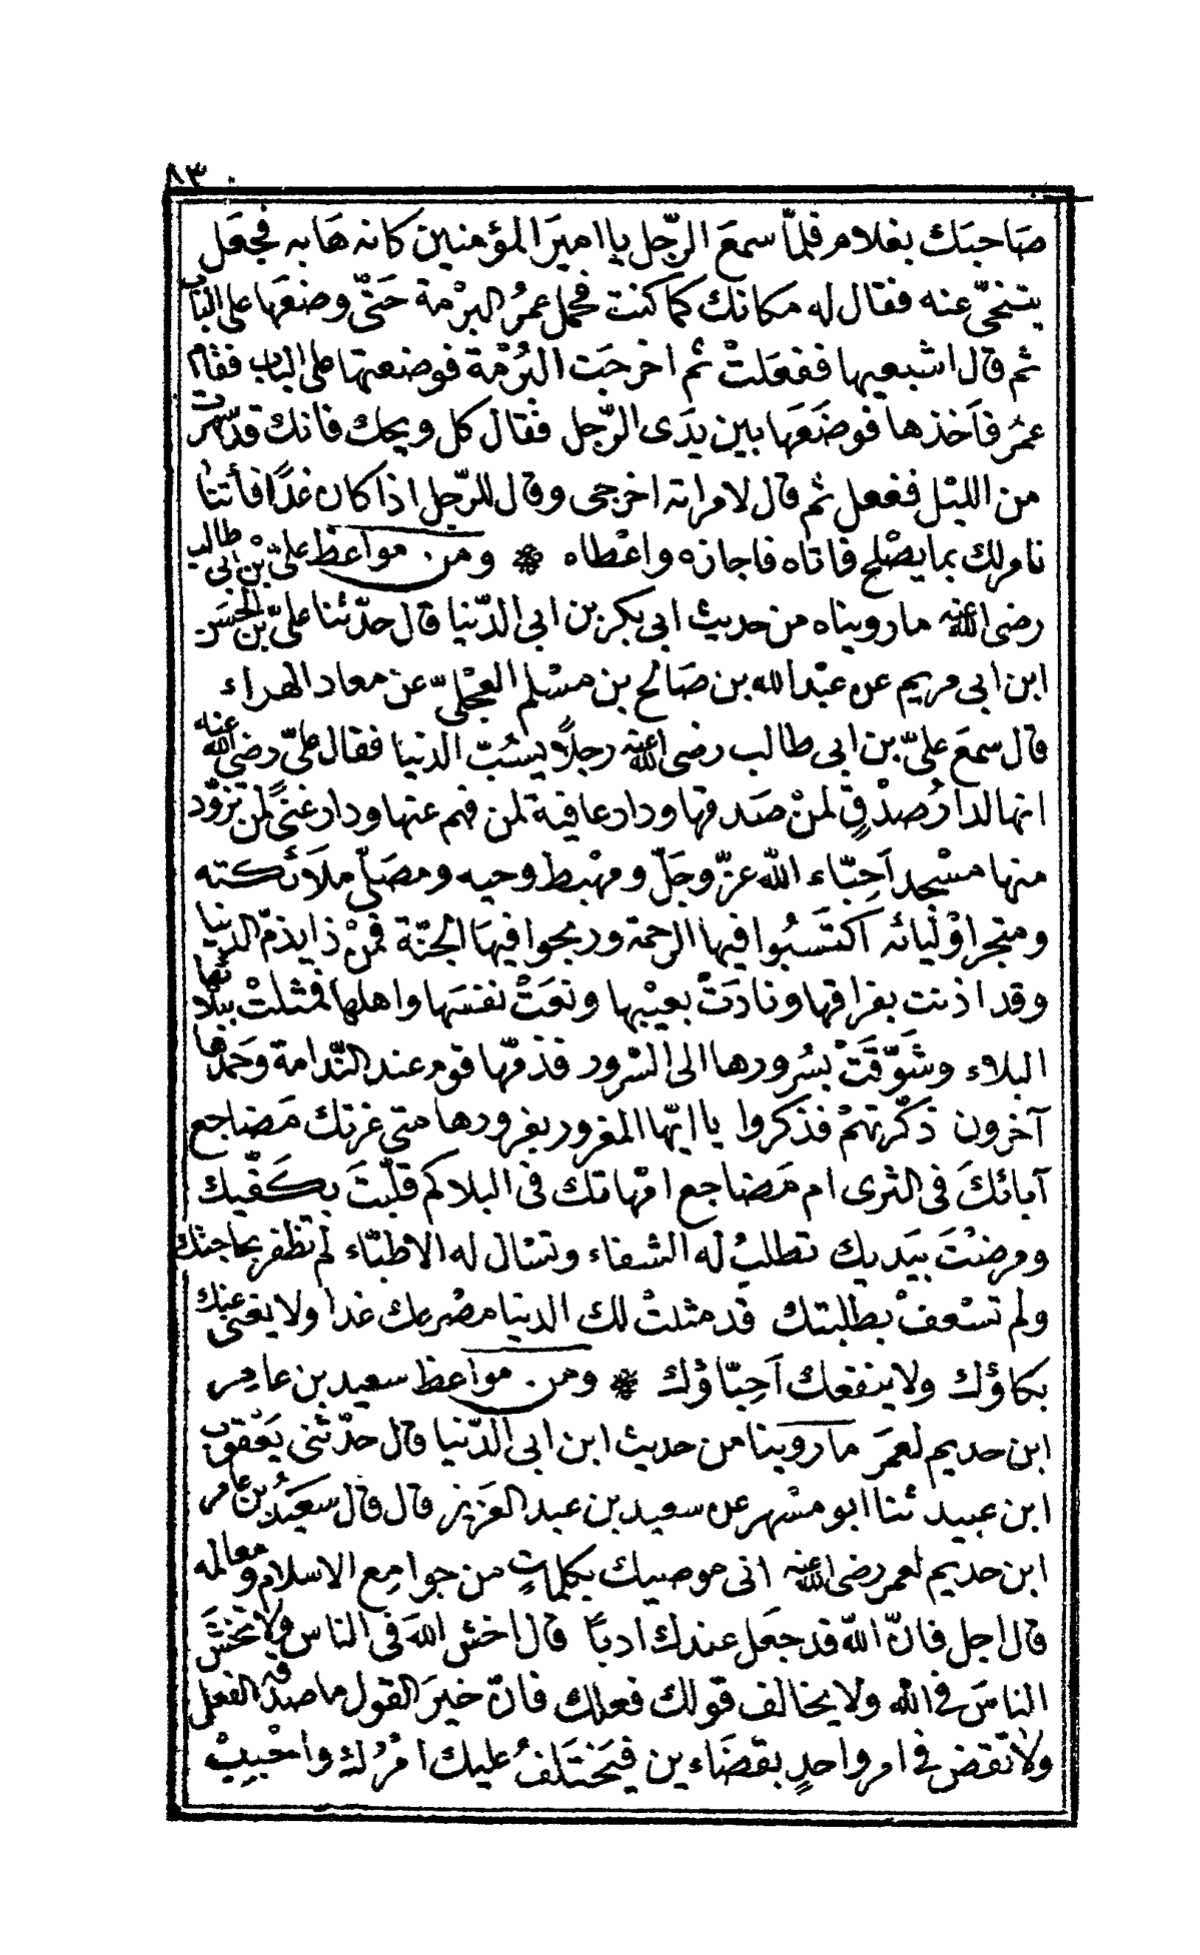 ٨٣
صَاحبَك بغلام فلمّا سمعَ الرّجل يا اميرَ المؤمنين كانه هَابه فجعَل
يتنحّى عنه فقال له مكانك كما كنت فحمل عمرُ البرْمة حَتّى وضعَها على الباب
ثم قال اشبعيها ففعَلتْ ثم اخرجَت البُرْمة فوضعتها على الباب فقام
عمرُ فاَخذها فوضَعَها بين يدَى الرّجل فقال كل ويحك فانك قد سهرت
من الليْل ففعل ثم قال لامراته اخرجى وقال للرّجل اذا كان غدًا فأتنا
نامر لك بما يصْلح فاتاه فاجازه واعْطاه ۞ ومن مواعظ علىّ بن ابى طالب
رضى الله عنه ما رويناه من حديث ابى بكر بن ابى الدّنيا قال حدّثنا علىّ بن الحسَن
ابن ابى مريم عن عبْد الله بن صَالح بن مسْلم العجْلىّ عن معاد الهراء
قال سمعَ علىّ بن ابى طالب رضى الله عنه رجلًا يسُبّ الدنيا فقال علىّ رضى الله عنه
انها لدارُ صدْقٍ لمنْ صَدقها ودار عافية لمن فهم عنها ودار غنًى لمن تزوّد
منها مسْجد اَحِبّاء اللّه عزّ وجَلّ ومهْبط وحيه ومصَلّى ملَائكته
ومتجر اوْليائه اكتَسَبُوا فيها الرحمة وربحوا فيهَا الجنّة فمنْ ذا يذمّ الدنيا
وقد اذنت بفراقها ونادَتْ بعيْبها ونعَتْ نفسَها واهلها فمثلتْ ببلائها
البلاء وشَوّقَتْ بسُرورها الى السّرور فذمّها قوم عند النّدامة وحَمدَها
آخرون ذكّرتهمْ فذكروا يا ايّها المغرور بغرورها متى غرتك مَضاجع
آبائكَ فى الثرى ام مَضاجع امّهاتك فى البلاكم قلّبتَ بكَفّيك
ومرضْتَ بيَديك تطلبُ له الشفاء وتسْال له الاطبّاء لم تظفر بحاجتك
ولم تسْعفْ بطلبتك قد مثلتْ لك الدنيا مصْرعك غدا ولا يغنى عنك
بكاؤك ولا ينفعك اَحِبّاؤك ۞ ومن مواعظ سعيد بن عامر
ابن حديم لعمرَ ما روينا من حديث ابن ابى الدّنيا قال حدّثنى يَعْقوب
ابن عبيد ثنا ابو مسْهر عن سعيد بن عبد العَزيز قال قال سعَيدُ بن عامر
ابن حديم لعمر رضى الله عنه انى موصيك بكلماتٍ من جوامِع الاسلام ومعالمه
قال اجل فانّ اللّه قد جعَل عندك ادبًا قال اخش اللّهَ فى الناس ولا تخشَ
الناسَ فى الله ولا يخالف قولك فعلك فانّ خيرَ القول ما صدقه الفعل
ولا تقض فى امر واحدٍ بقضَاءين فيَختَلفُ عليك امْرُك واحْبِبْ